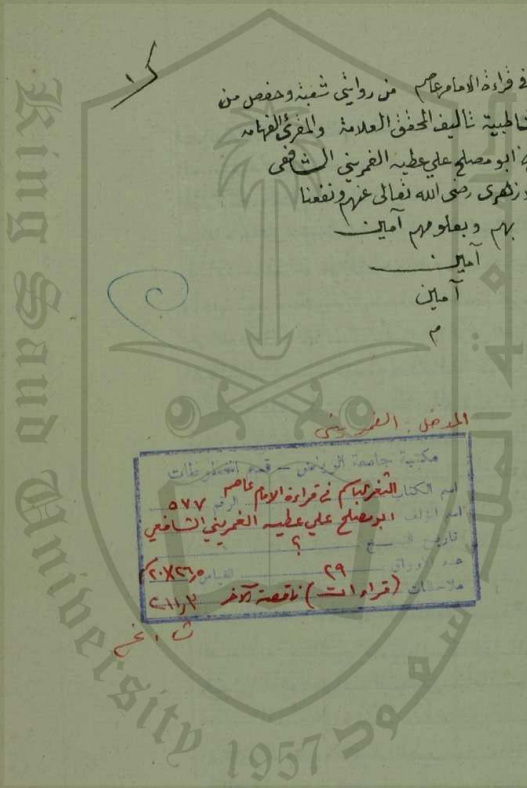 في قراءة الامام عاصم من روايتي شعبة وحفص من
تأليف المحقق العلامة والمقرئ الفهامه
ابو مصلح علي عطيه الغمريني الشافعي
رضى الله تعالى عنهم ونفعنا
بهم وبعلومهم آمين
آمين
آمين
م
المدخل : الغمريني
مكتبة جامعة الرياض - قسم المخطوطات
اسم الكتاب الثغر الباسم في قراءة الامام عاصم الرقم ٥٧٧
اسم المؤلف ابو مصلح علي عطيه الغمريني الشافعي
تاريخ النسخ ؟
عدد الاوراق ٢٩ القياس
ملاحظات (قراءات) ناقصة الآخر
King Saud University
1957
جامعة الملك سعود